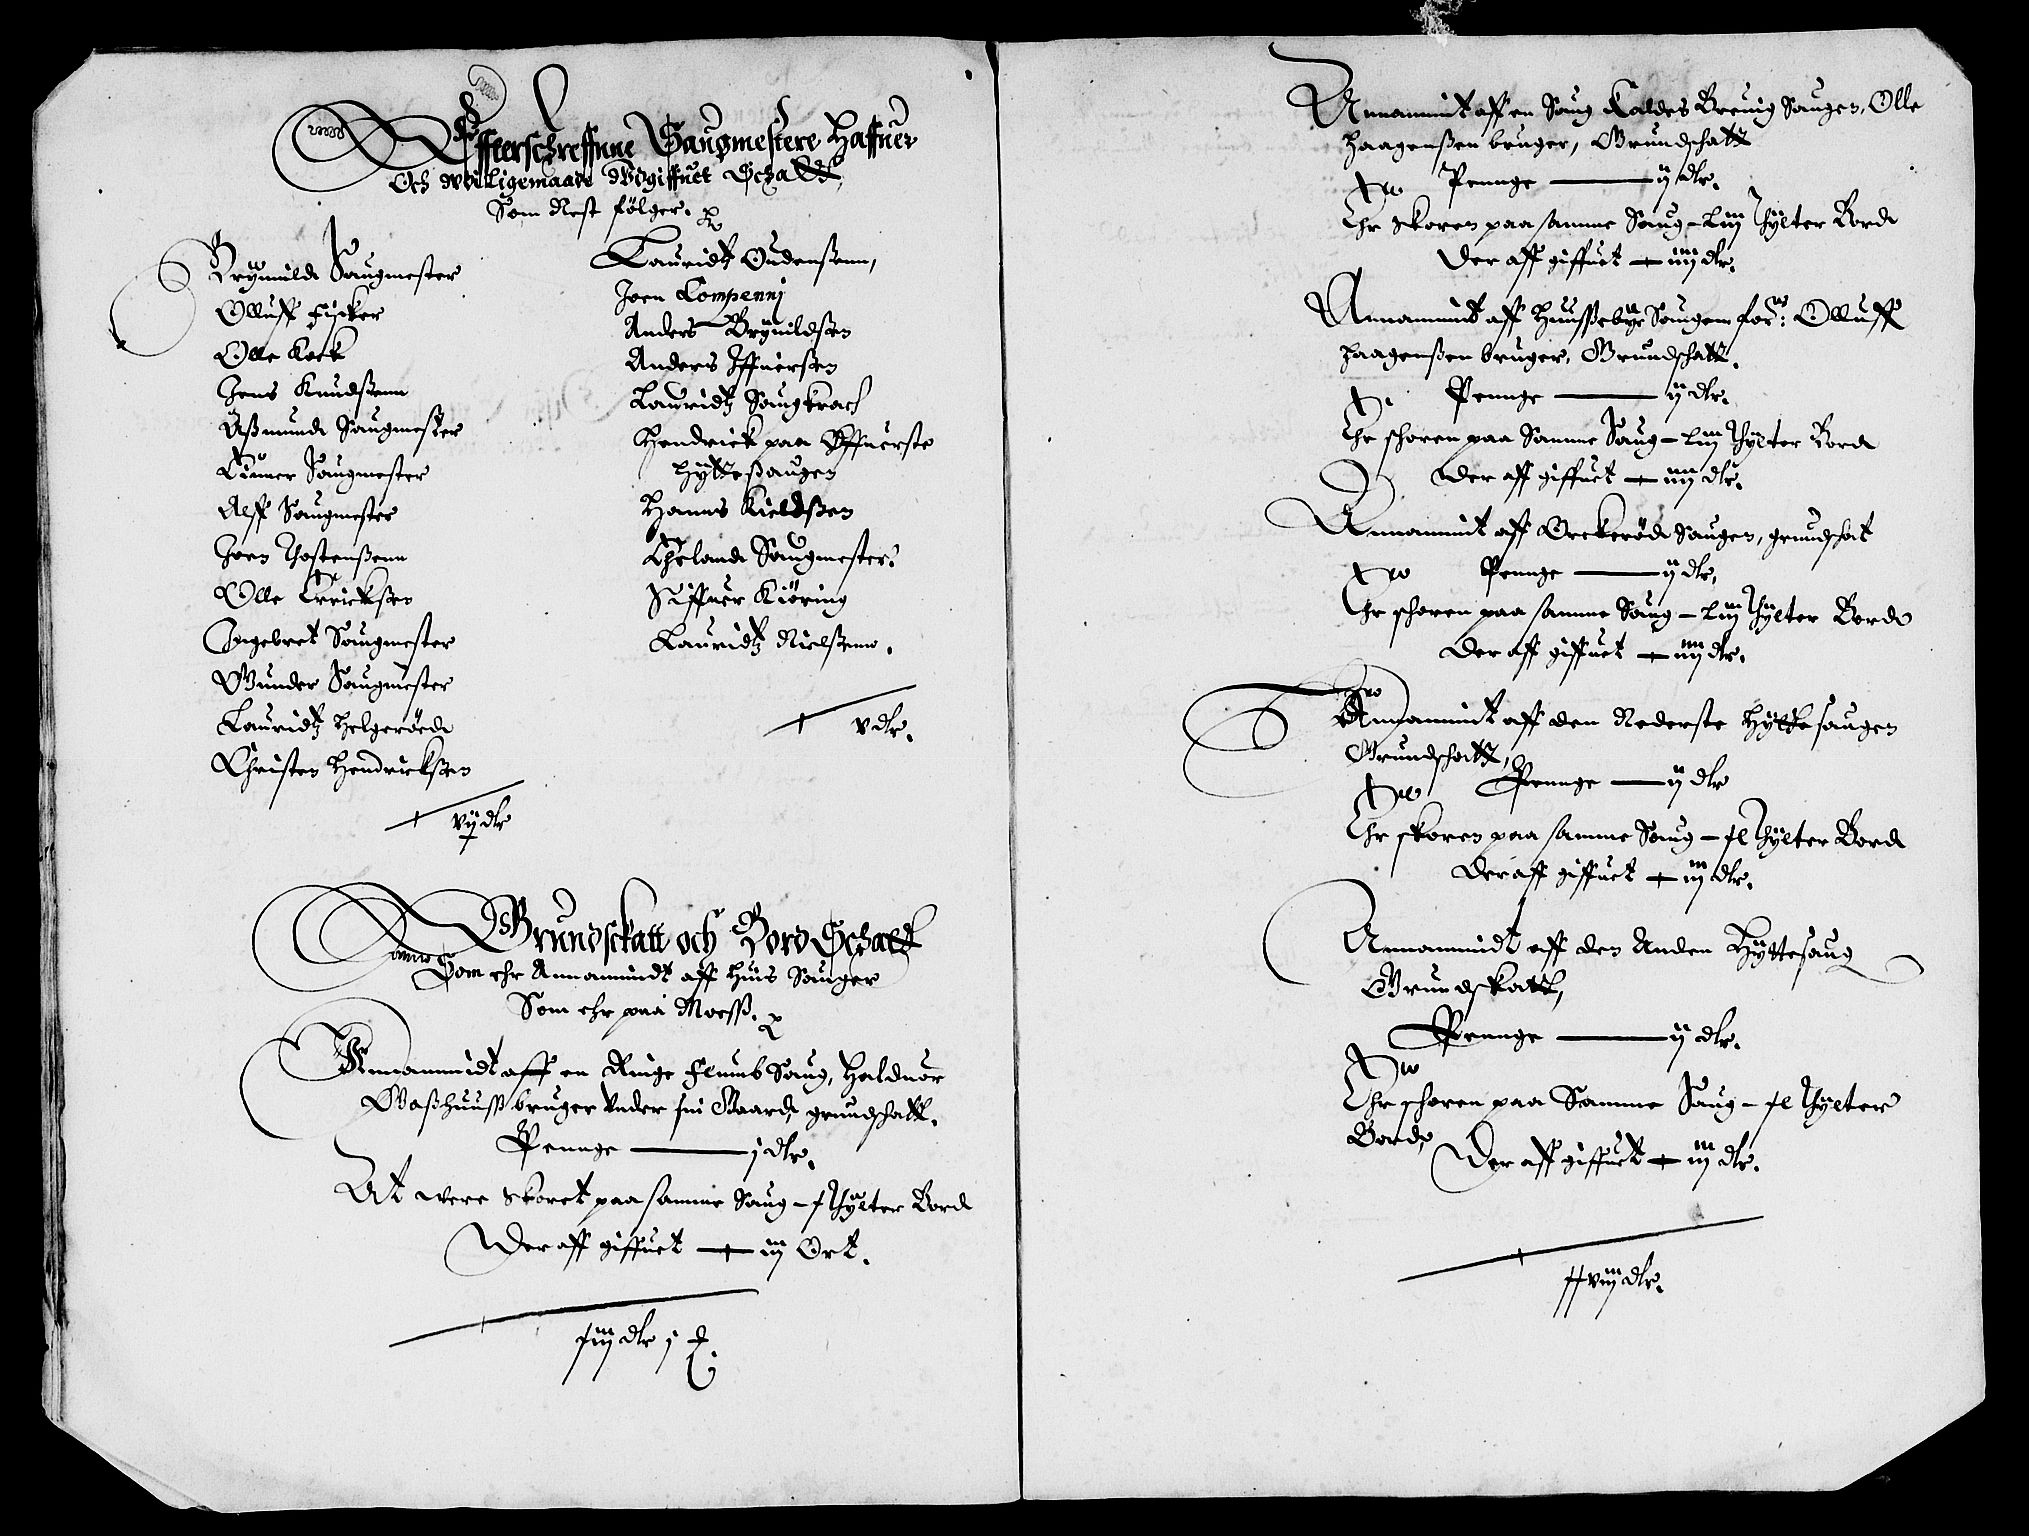 Effterschreffnne Saugmestere Haffuer
Och udj Ligemaade Udgiffuet Schatt,
Som Nest følger.
Brÿnnild Saugmester
Olluff Fisker
Olle Kock
Jens Knudsßenn
Aßmund Saugmester
Einner Saugmester
Alff Saugmester
Joen Thostenßenn
Olle Erricksßen
Ingebret Saugmester
Gunder Saugmester
Lauridtz Helgerøed
Christen Hendricksßen
vij dlr
Lauridtz Oudenßenn,
Joen Compennj
Anders Brÿnildsßen
Anders Iffuersßen
Lauridtz Saugkrach
Hendrick paa Øffuerste
Hÿtteßaugen
Hanns Kieldsßen
Erland Saugmester.
Siffuer Kiøring
Lauridtz Nielsßenn.
v dlr.
Grundschatt och Bord Schatt
Som ehr Annammidt aff huis Sauger
Som ehr paa Moess.
Annammidt aff en Ringe Flomb Saug, Halduor
Waßhuuß bruger under sin Gaard, grundschatt.
Pennge — j dlr.
At were skoret paa samme Saug – x Thÿlter Bord
Der aff giffuet — iij Ort.
xiij dlr j
Annammit aff en Saug Caldes Breuig Saugen, Olle
Haagensßen bruger, Grundschatt
Pennge — ij dlr.
Ehr skoren paa samme Saug – Liij Thÿlter Bord
Der aff giffuet — iiij dlr.
Annammit aff Huußebÿe Saugen for: Olluff
Haagensßen bruger, Grundschatt.
Pennge — ij dlr.
Ehr schoren paa Samme Saug – Liij Thÿlter Bord
Der aff giffuet — iiij dlr.
Annammit aff Orckerød Saugen, grundschat
Pennge — ij dlr.
Ehr schoren paa samme Saug – Liij Thÿlter Bord
Der aff giffuet — iiij dlr.
Annammit aff den Nederste Hÿttesaugen
Grundschatt,
Pennge — ij dlr
Ehr skoren paa samme Saug – xl Thÿlter Bord
Der aff giffuet — iij dlr.
Annammidt aff den Anden Hÿttesaug
Grundskatt,
Pennge — ij dlr.
Ehr schoren paa Samme Saug – xl Thÿlter
Bord,
Der aff giffuet — iij dlr.
xxviij dlr.